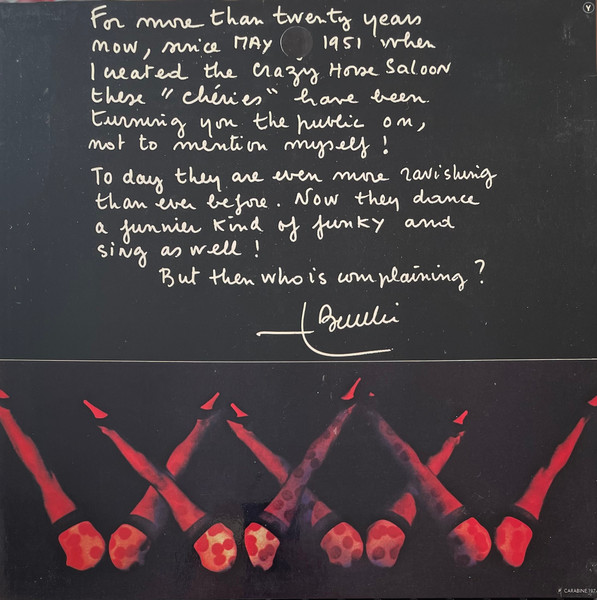 Y
For more than twenty years
now, since MAY 1951 when
I created the Crazy Horse Saloon
these "chéries" have been
turning you the public on,
not to mention myself !
To day they are even more ravishing
than ever before. Now they dance
a funnier kind of funky and
sing as well !
But then who is complaining ?
CARABINE